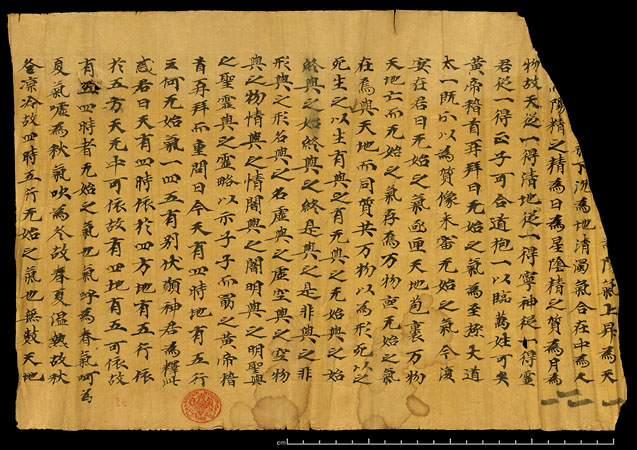 陰氣上昇為天
下沉為地清濁氣合在中為人
陽精之精為日為星陰精之質為月為
物故天從一得清地從一得寧神從一得靈
君從一得正子可合道抱一以臨萬姓可矣
黃帝稽首再拜曰无始之氣為至極大道
太一既以為質像未審无始之氣今須
安在君曰无始之氣亟匝天地苞裹万物
天地亡而无始之氣存為万物亡无始之氣
在為與天地而同質共万物以為形死以之
死生之以生有與之有无與之无始與之始
終與之始終與之終是與之是非與之非
形與之形名與之名虛與之虛空與之空物
與之物情與之情闇與之闇明與之明聖與
之聖靈與之靈略以示子子而勗之黃帝稽
首再拜而重問曰今天有四時地有五行
云何无始氣一四五有別伏願神君為釋此
惑君曰天有四時依於四方地有五行依
於五方天无中可依故有四地有五可依故
有五四時者无始之氣也氣綽為春氣呵為
夏氣噓為秋氣吹為冬故春夏溫熱故秋
冬凉冷故四時五行无始之氣也無鼓天地
cm